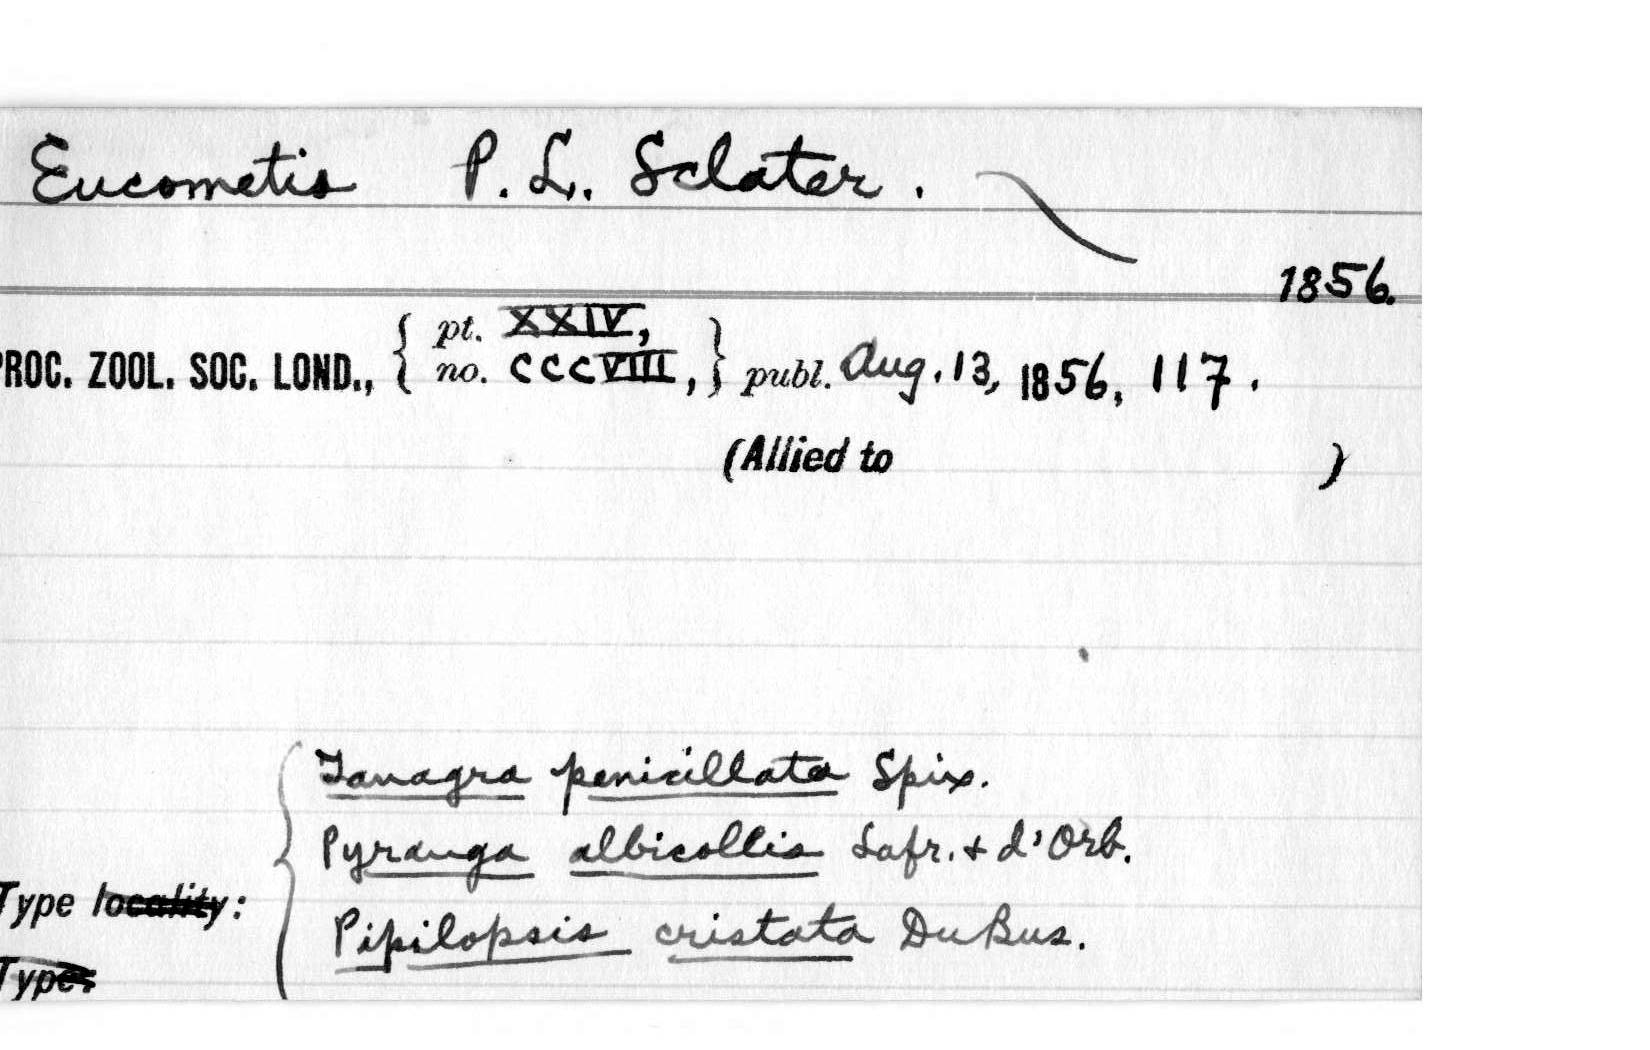 Eucometis P. L. Sclater.
1856.
PROC. ZOOL. SOC. LOND., { pt. XXIV, no. CCCVIII, } publ. Aug. 13, 1856, 117.
(Allied to )
Tanagra penicillata Spix.
Pyranga albicollis Lafr. & d'Orb.
Type locality:
Pipilopsis cristata DuBus.
Type: